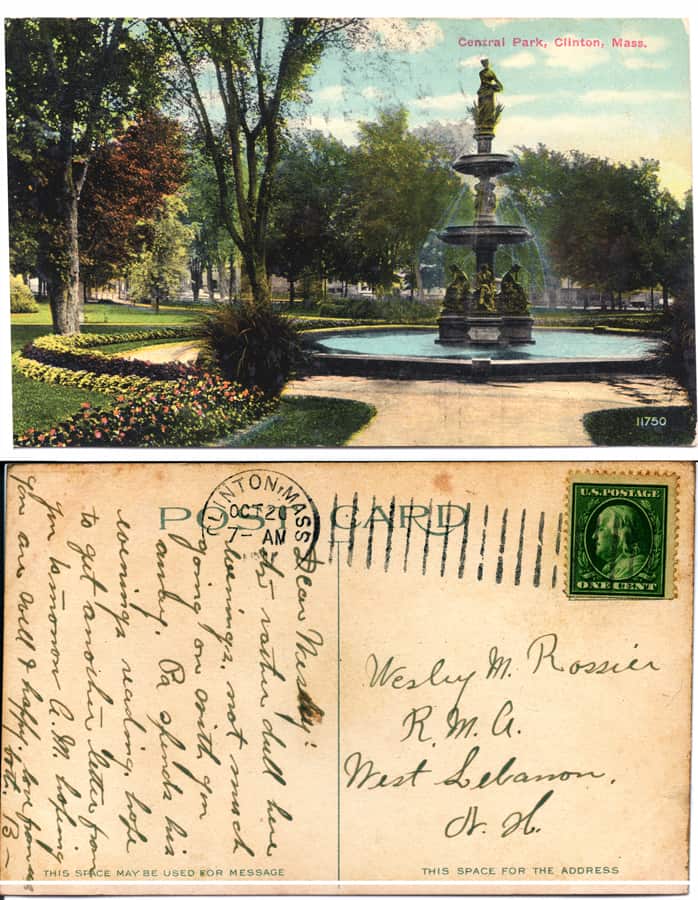 Central Park, Clinton, Mass.
11750
POST CARD
CLINTON, MASS
OCT 20
7 - AM
U.S. POSTAGE
ONE CENT
Dear Wesley:
It's rather dull here
evenings, not much
going on with you
away. Pa spends his
evenings reading. hope
to get another letter from
you tomorrow A.M. hoping
you are well & happy. love from us
both. B -
Wesley M. Rossier
R. M. A.
West Lebanon,
N. H.
THIS SPACE MAY BE USED FOR MESSAGE
THIS SPACE FOR THE ADDRESS